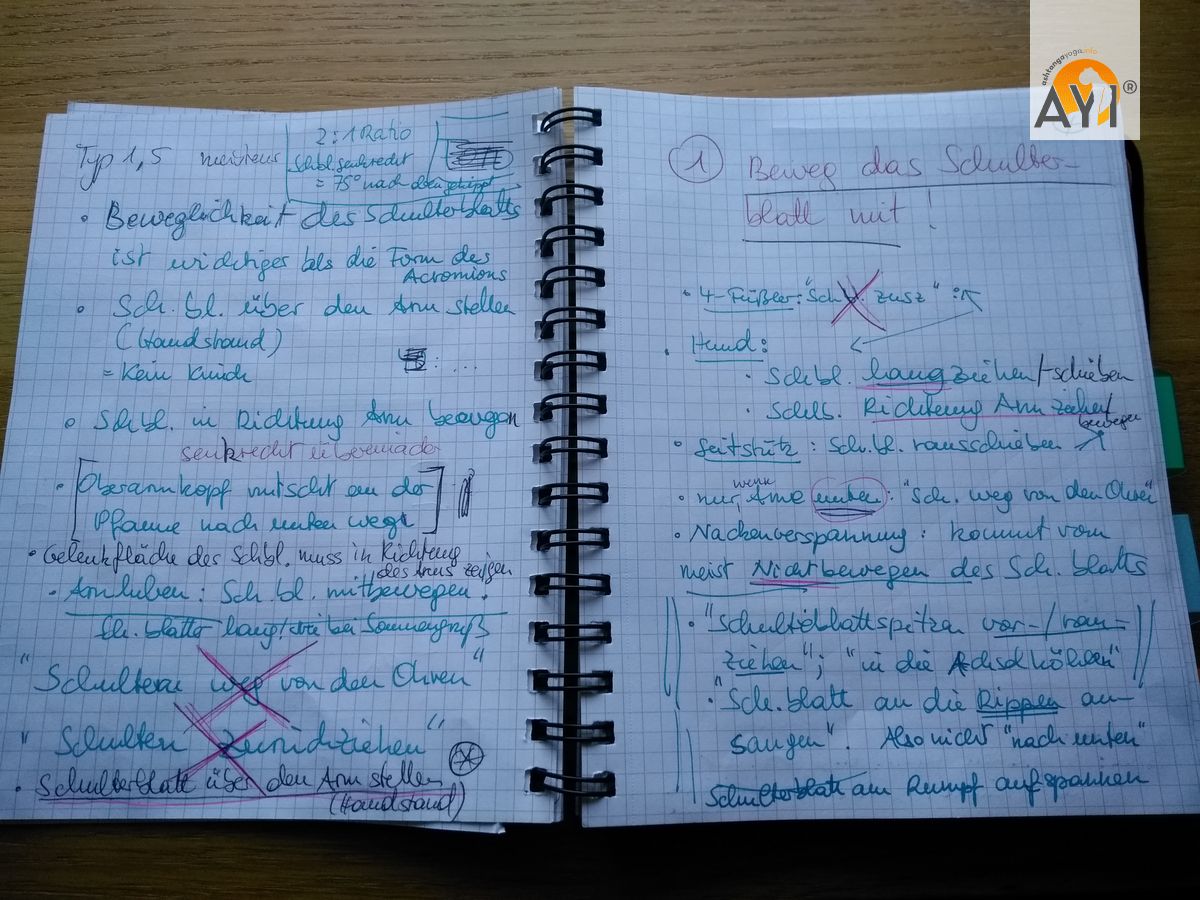 ashtangayoga.info
AYI®
Typ 1,5 meistens
2:1 Ratio
Schbl. senkrecht
= 75° nach oben gekippt
• Beweglichkeit des Schulterblatts
ist wichtiger als die Form des
Acromions
• Sch. bl. über den Arm stellen
(Handstand)
= Kein Knick
: ...
• Schbl. in Richtung Arm bewegen
senkrecht
[Oberarmkopf rutscht an der
Pfanne nach unten weg]
• Gelenkfläche des Schbl. muss in Richtung
des Arms zeigen
• Arm heben: Sch. bl. mitbewegen.
Sch. blatt bei Sonnengruß
"Schultern weg von den Ohren"
"Schultern zurückziehen"
• Schulterblatt über den Arm stellen
(Handstand)
1 Beweg das Schulter-
blatt mit!
• 4-Füßler: "Sch. bl. zusz":
• Hund:
• Schbl. langziehen/-schieben
• Schlb. Richtung Arm ziehen/
bewegen
• Seitstütz: Sch. bl. rausschieben
• nur, wenn Arme unten: "Sch. weg von den Ohren"
• Nackenverspannung: kommt vom
meist Nichtbewegen des Sch. blatts
• "Schulterblattspitzen vor-/ran-
ziehen"; "in die Achselhöhlen"
• "Sch. blatt an die Rippen an-
saugen". Also nicht "nach unten"
Schulterblatt am Rumpf aufspannen